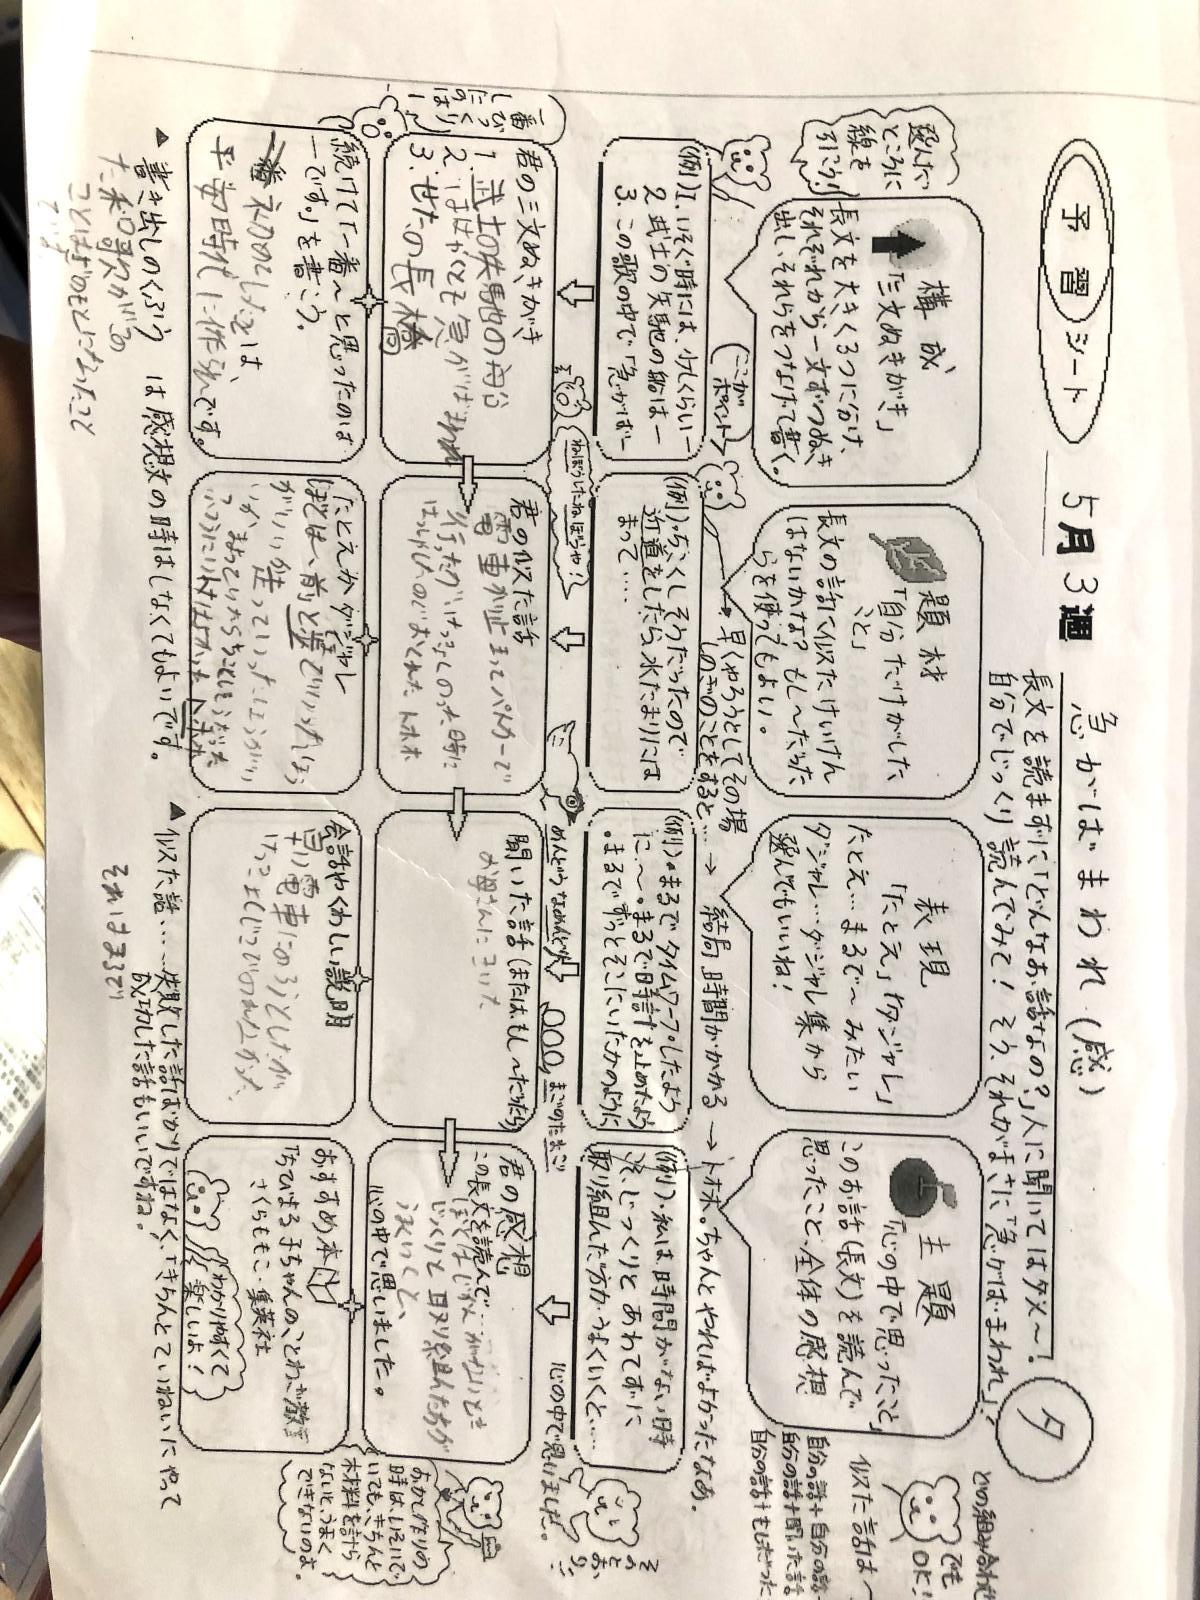 予習シート
5月3週
急がばまわれ(感)
タ
長文を読まずに「どんなお話なの?」人に聞いてはダメ〜!
自分でじっくり読んでみて! そう、それがまさに「急がばまわれ」!
選んだ
ところに
線を
引こう!
構成
「三文ぬきがき」
長文を大きく3つに分け、
それぞれから一文ずつぬき
出し、それらをつなげて書く。
題材
「自分だけがした
こと」
長文の話に似たけいけん
はないかな? もし〜だった
らを使ってもよい。
表現
「たとえ」「ダジャレ」
たとえ…まるで〜みたい
ダジャレ…ダジャレ集から
選んでもいいね!
主題
「心の中で思ったこと」
このお話(長文)を読んで
思ったこと、全体の感想
似た話は〜
どの組み合わせ
でも
OK!
自分の話+自分の話
自分の話+聞いた話
自分の話+もしだった
ここが
ポイント
早くやろうとしてその場
しのぎのことをすると… → 結局、時間がかかる → トホホ。ちゃんとやればよかったなあ。
(例)1. いそぐ時には、少しくらい―
2. 武士の矢馳の船は―
3. この歌の中で「急がば―
(例)・ちこくしそうだったので
近道をしたら水たまりには
まって…
(例)・まるでタイムワープしたよう
に〜。まるで時計を止めたよう
・まるでずっとそこにいたかのように
(例)・私は時間がない時
ほど、じっくりとあわてずに
取り組んだ方がうまくいくと……
心の中で思いました。
そのとおり!
一番
びっくり
したのは―
ねぼうしたねぼうや!
めんどうなめんどり
まごのたまご
君の三文ぬきがき
1. 武士の矢馳の船
2. はやくとも急がばまわれ
3. せたの長橋
君の似た話
電車が止まってパトカーで
行ったり
トホホ
聞いた話(またはもし〜だったら)
お母さんにきいた
君の感想
この長文を読んで…
ぼくはじかんがないとき
じっくりと取り組んだ方が
うまくいくと、
心の中で思いました。
おかし作りの
時は、いそいで
いても、きちんと
材料を計ら
ないとうまく
できないのよ。
続けて「一番〜と思ったのは
―です。」を書こう。
平安時代に作られです。
たとえかダジャレ
会話やくわしい説明
早い電車にのろうとしたが
おすすめ本
「ちびまる子ちゃんのことわざ教室」
さくらももこ・集英社
わかりやすくて
楽しいよ!
▲ 書き出しのくふう は感想文の時はしなくてもよいです。
▲ 似た話……失敗した話ばかりではなく、「きちんとていねいにやって
成功した話もいいですね。
た和歌がこの
ことばのもとになったこと
です。
それはまるで